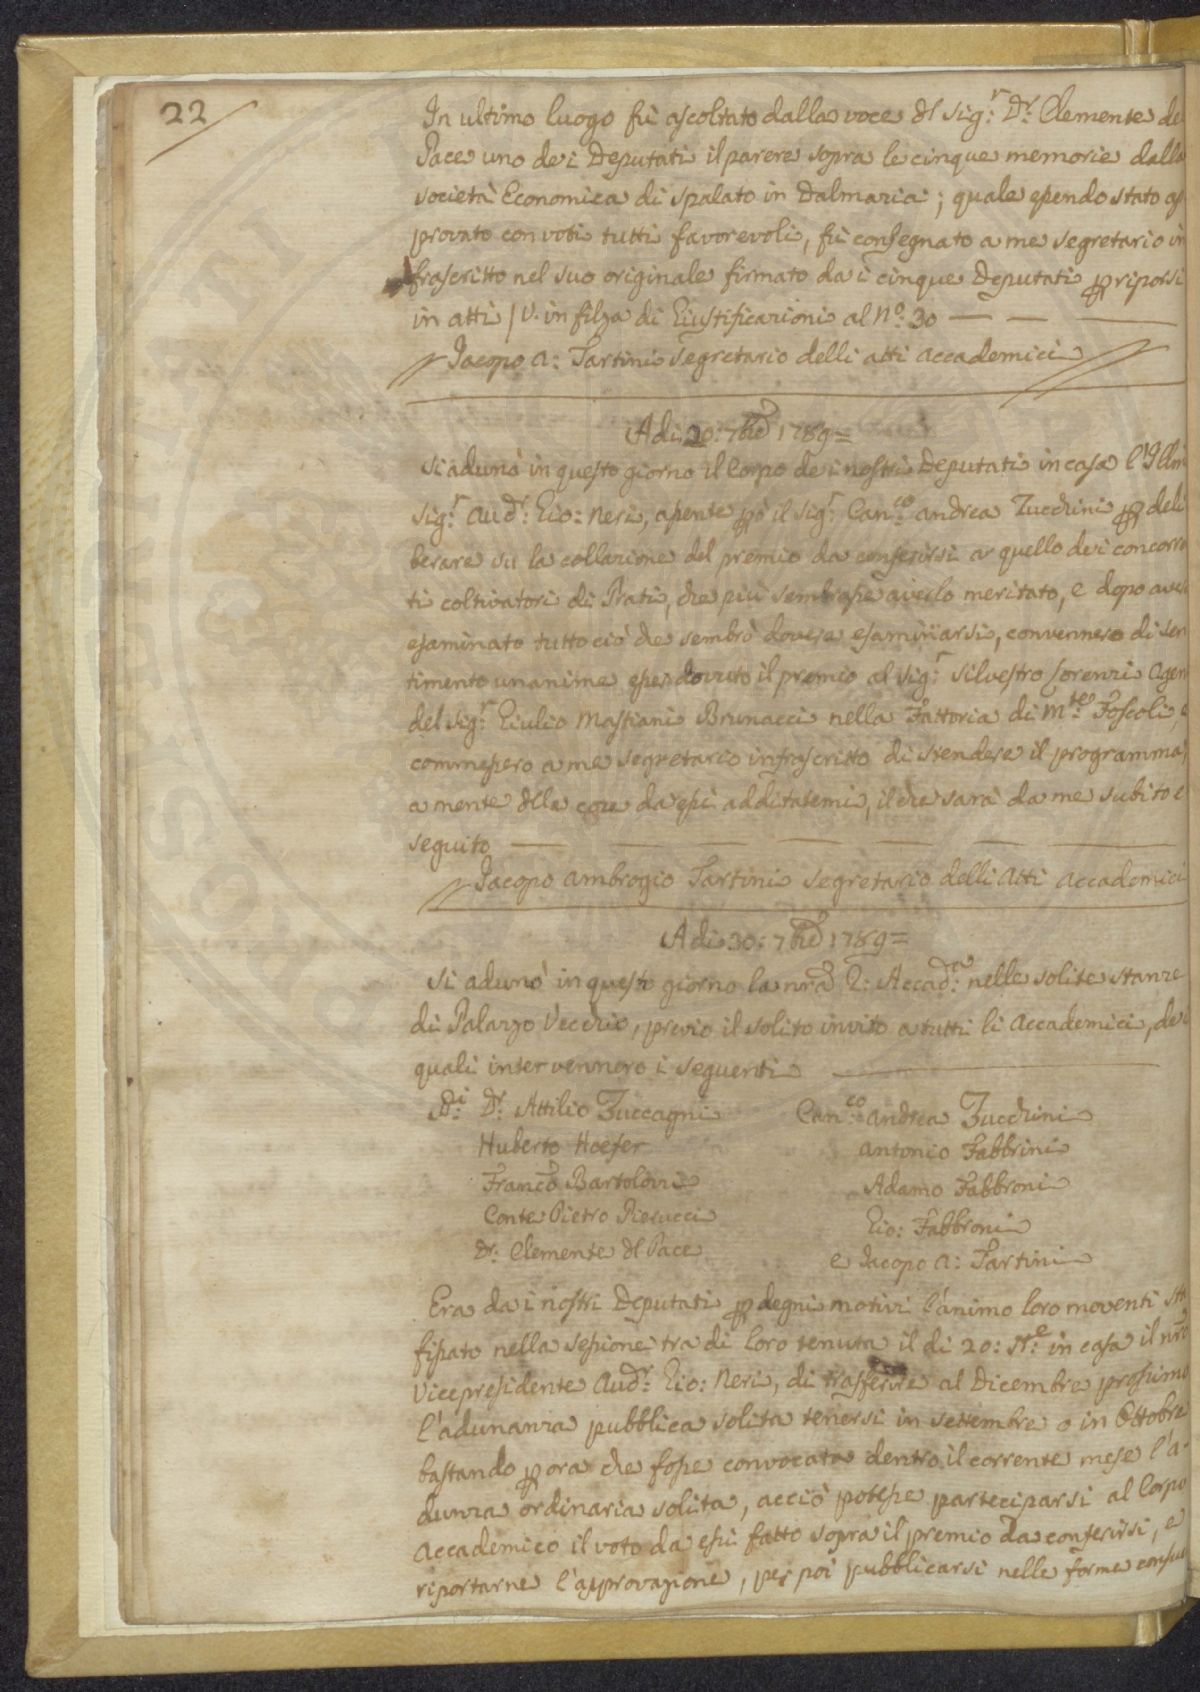 22
In ultimo luogo fù ascoltato dalla voce dl Sig:r Dr: Clemente del
Pace uno dei Deputati il parere sopra le cinque memorie dalla
società Economica di Spalato in Dalmazia; quale essendo stato ap
provato con voti tutti favorevoli, fù consegnato a me segretario in
frascritto nel suo originale firmato da i cinque Deputati p riporsi
in atti / V. in filza di Giustificazioni al No: 30
Jacopo A: Tartini Segretario delli atti Accademici
A di 20: 7bre 1789=
Si adunò in questo giorno il Corpo de i nostri Deputati in casa l'Illm
Sig:r Aud:r Gio: Neri, assente pò il Sig:r Can:co Andrea Zucchini p deli
berare su la collazione del premio da conferirsi a quello dei concorren
ti coltivatori di Prati, che più sembrasse averlo meritato, e dopo aver
esaminato tutto ciò che sembrò dovere esaminarsi, convennero di sen
timento unanime esser dovuto il premio al Sig:r Silvestro Lorenzi Agen
del Sig:r Giulio Mastiani Brunacci nella Fattoria di M:te Foscoli, e
commessero a me Segretario infrascritto di stendere il programma
a mente dlle cose da essi additatemi, il che sarà da me subito e
seguito
Jacopo Ambrogio Tartini Segretario delli Atti Accademici
A di 30: 7bre 1789=
Si adunò in questo giorno la nra R: Accad:ca nelle solite stanze
di Palazzo Vecchio, previo il solito invito a tutti li Accademici, de i
quali intervennero i seguenti
SS:ri Dr: Attilio Zuccagni Can:co Andrea Zucchini
Huberto Hoefer Antonio Fabbrini
Franco Bartolozzi Adamo Fabbroni
Conte Pietro Pierucci Gio: Fabbroni
Dr: Clemente dl Pace e Jacopo A: Tartini
Era da i nostri Deputati p degni motivi l'animo loro moventi st
fissato nella sessione tra di loro tenuta il di 20: St:e in casa il nro
Vicepresidente Aud:r Gio: Neri, di trasferire al Dicembre prossimo
l'adunanza pubblica solita tenersi in Settembre o in Ottobre
bastando p ora che fosse convocata dentro il corrente mese l'a-
dunza ordinaria solita, acciò potesse parteciparsi al Corpo
Accademico il voto da essi fatto sopra il premio da conferirsi, e
riportarne l'approvazione, per poi pubblicarsi nelle forme consue